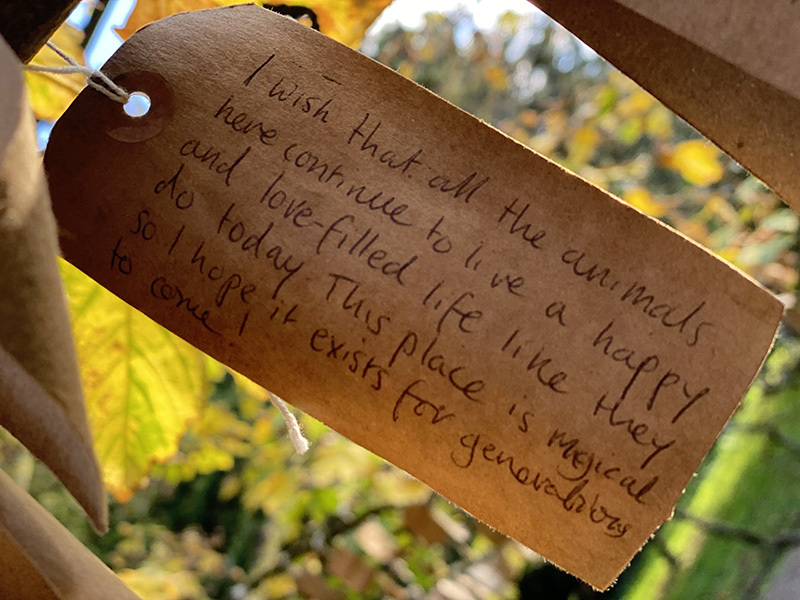 I wish that all the animals
here continue to live a happy
and love-filled life like they
do today. This place is magical
so I hope it exists for generations
to come!